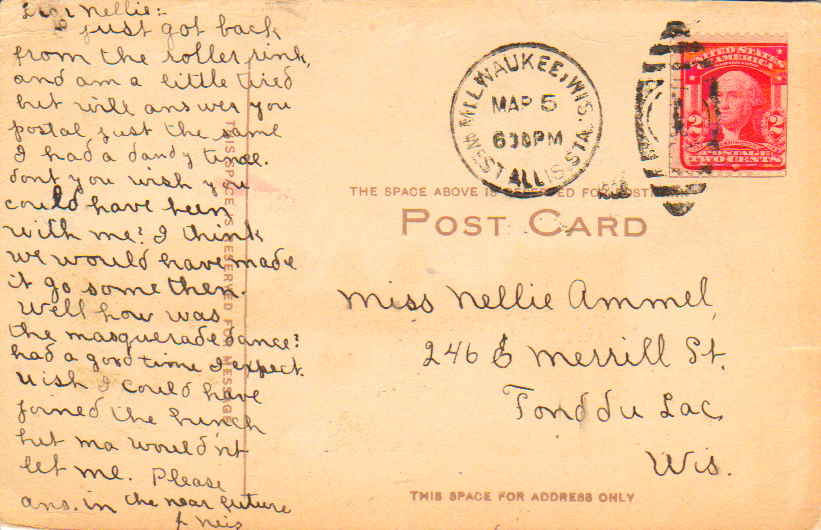 Dear Nellie:-
just got back
from the roller rink,
and am a little tired
but will answer you
postal just the same
I had a dandy time.
dont you wish you
could have been
with me? I think
we would have made
it go some then.
Well how was
the masquerade dance?
had a good time I expect.
Wish I could have
joined the bunch
but ma would'nt
let me. Please
ans. in the near future
THIS SPACE IS RESERVED FOR MESSAGE
MILWAUKEE, WIS.
MAR 5
630PM
WEST ALLIS STA.
UNITED STATES
OF AMERICA
2 2
POSTAGE
TWO CENTS
THE SPACE ABOVE IS RESERVED FOR POST
POST CARD
Miss Nellie Ammel,
246 E Merrill St.
Fond du Lac,
Wis.
THIS SPACE FOR ADDRESS ONLY